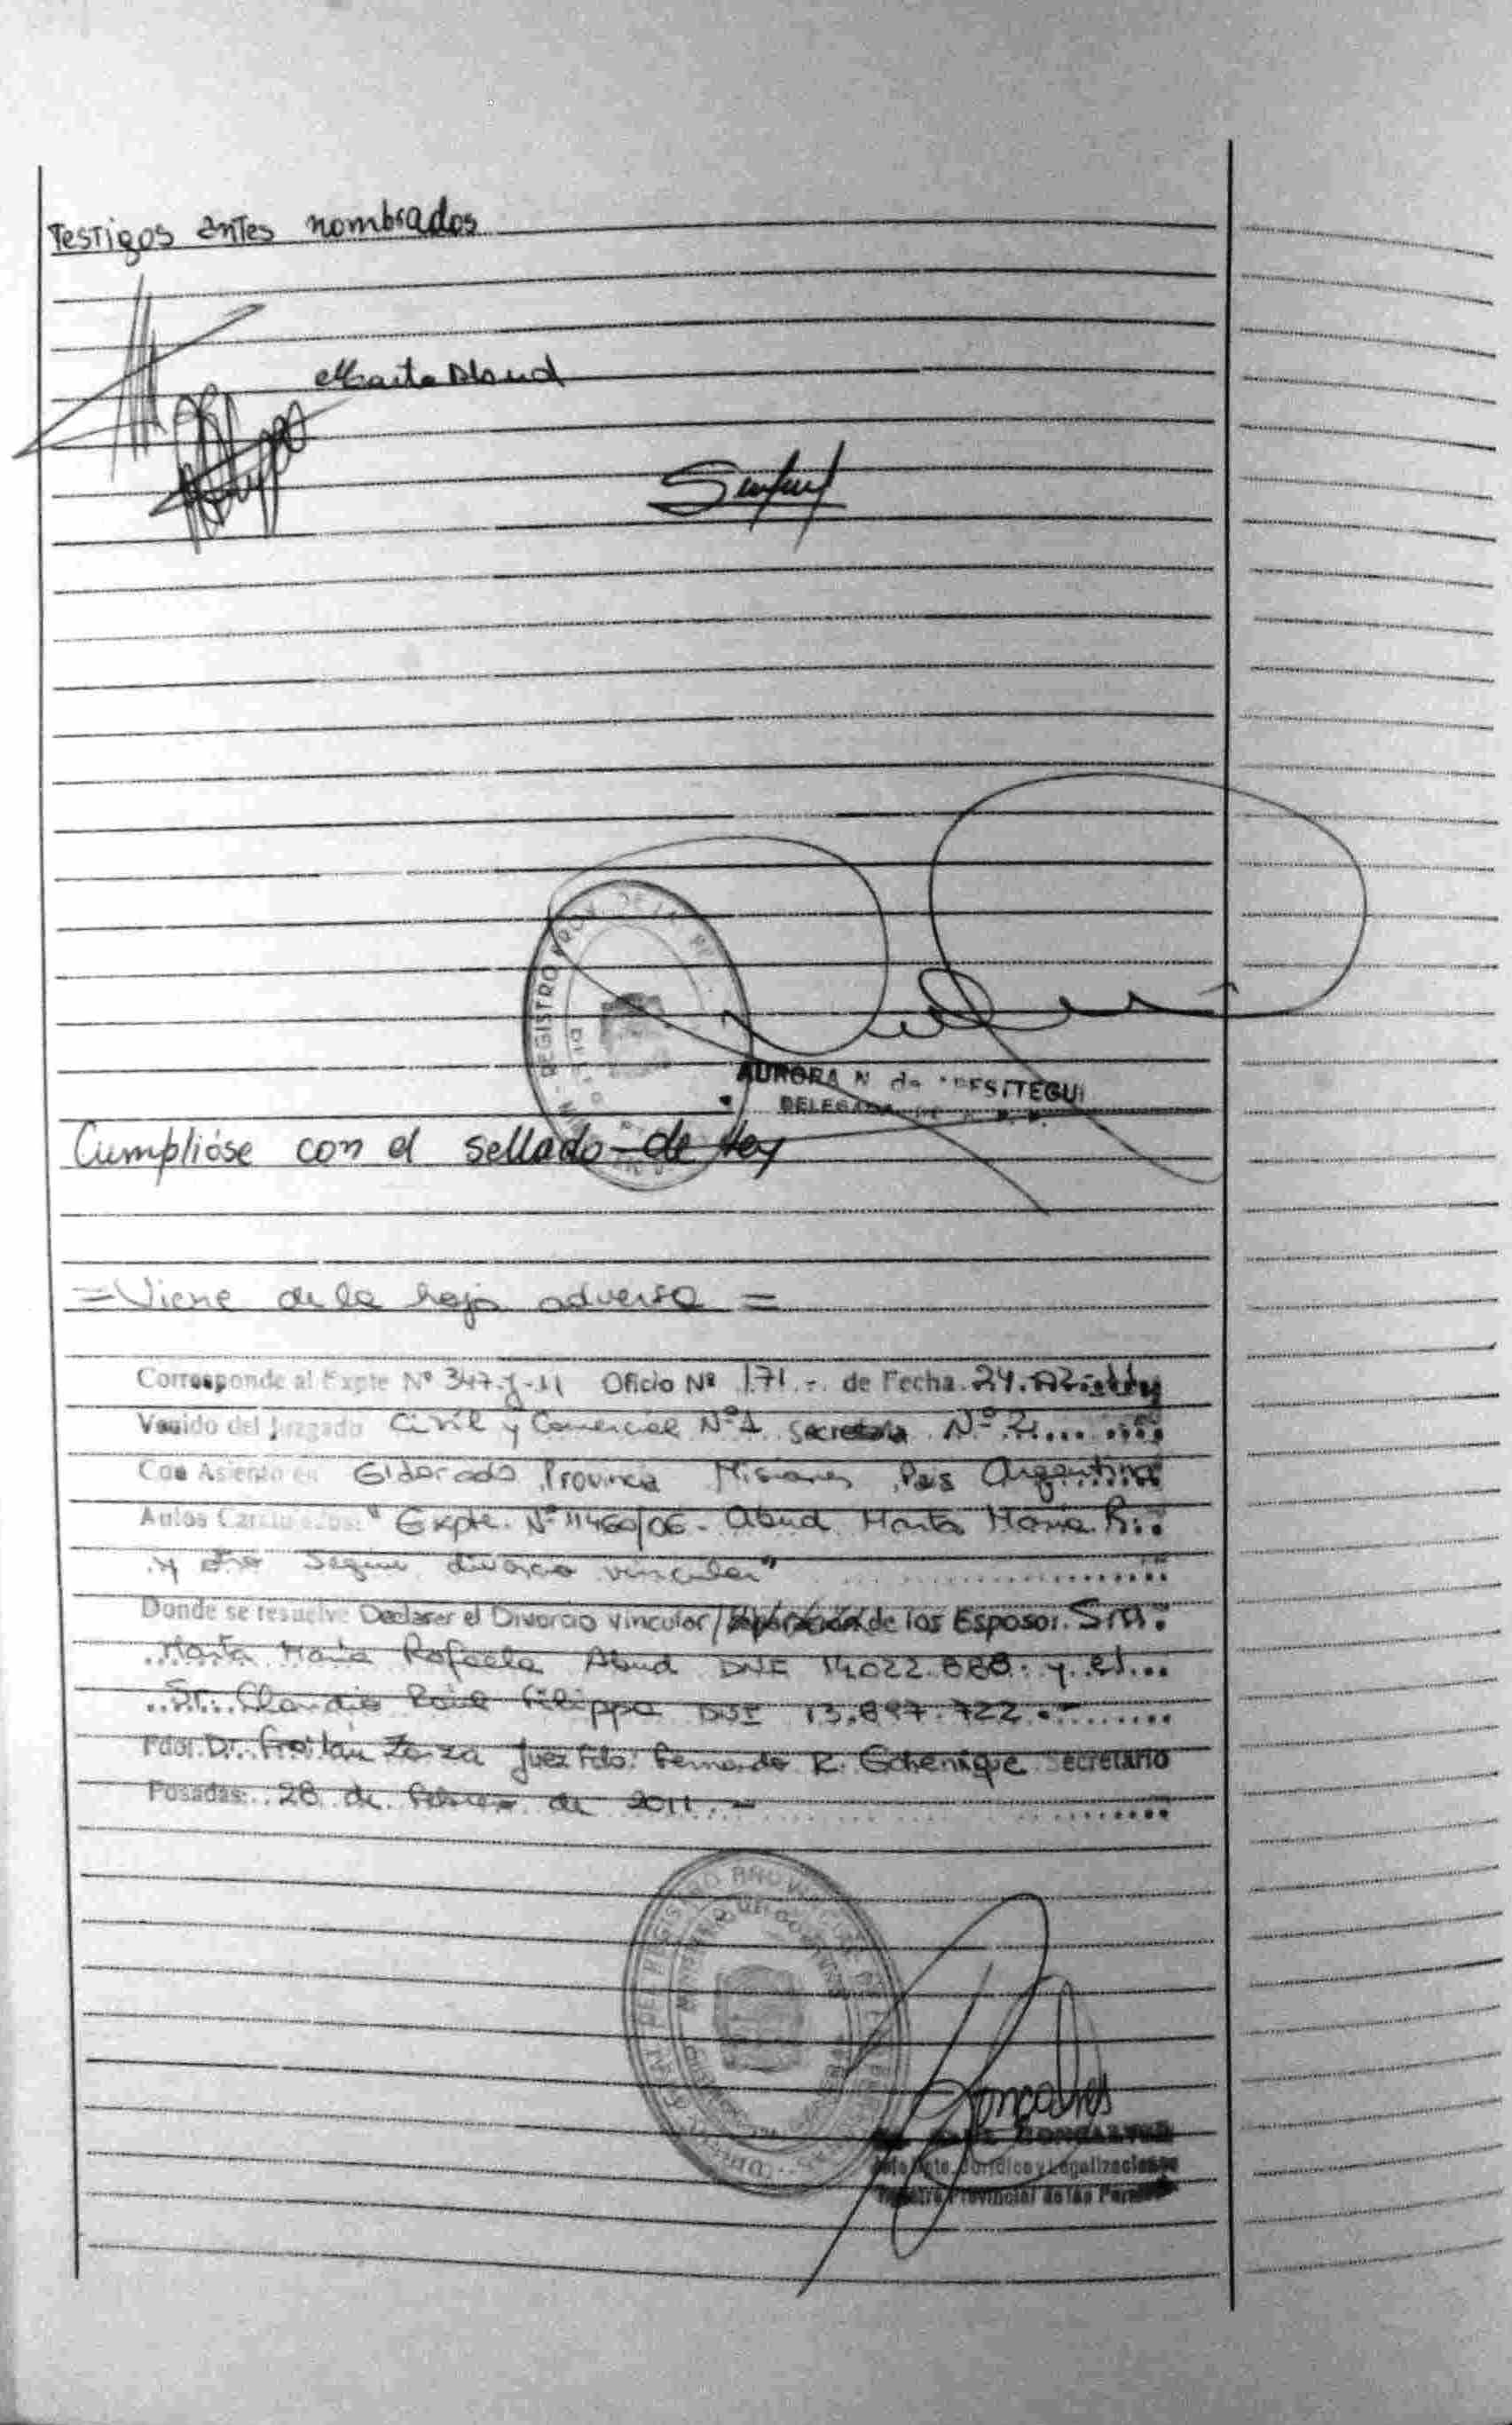 Testigos antes nombrados
Marta Abud
REGISTRO PROV. DE LAS
AURORA N de
DELEGADA
Cumplióse con el sellado de ley
= Viene de la hoja adversa =
Corresponde al Expte Nº 347-J-11 Oficio Nº 171.- de Fecha 24.02
Venido del Juzgado Civil y Comercial Nº 1 Secretaria Nº 2
Con Asiento en Eldorado Provincia Misiones Pais Argentina
Autos Caratulados: "Expte. Nº 11460/06 - Abud Marta María R.
y otro Segun divorcio vincular"
Donde se resuelve Declarar el Divorcio vincular/ de los Esposos. Sra.
Marta María Rafaela Abud DNI 14.022.888. y el
Sr. Claudio Raúl Filippa DNI 13.897.722.-
Fdor. Dr. Froilán Zarza Juez Fdo: Fernando R. Echenique Secretario
Posadas: 28 de febrero de 2011.-
MINISTERIO DE GOBIERNO
Goncalves
GONCALVES
Jefe Dpto. Jurídico y Legalizaciones
Registro Provincial de las Personas